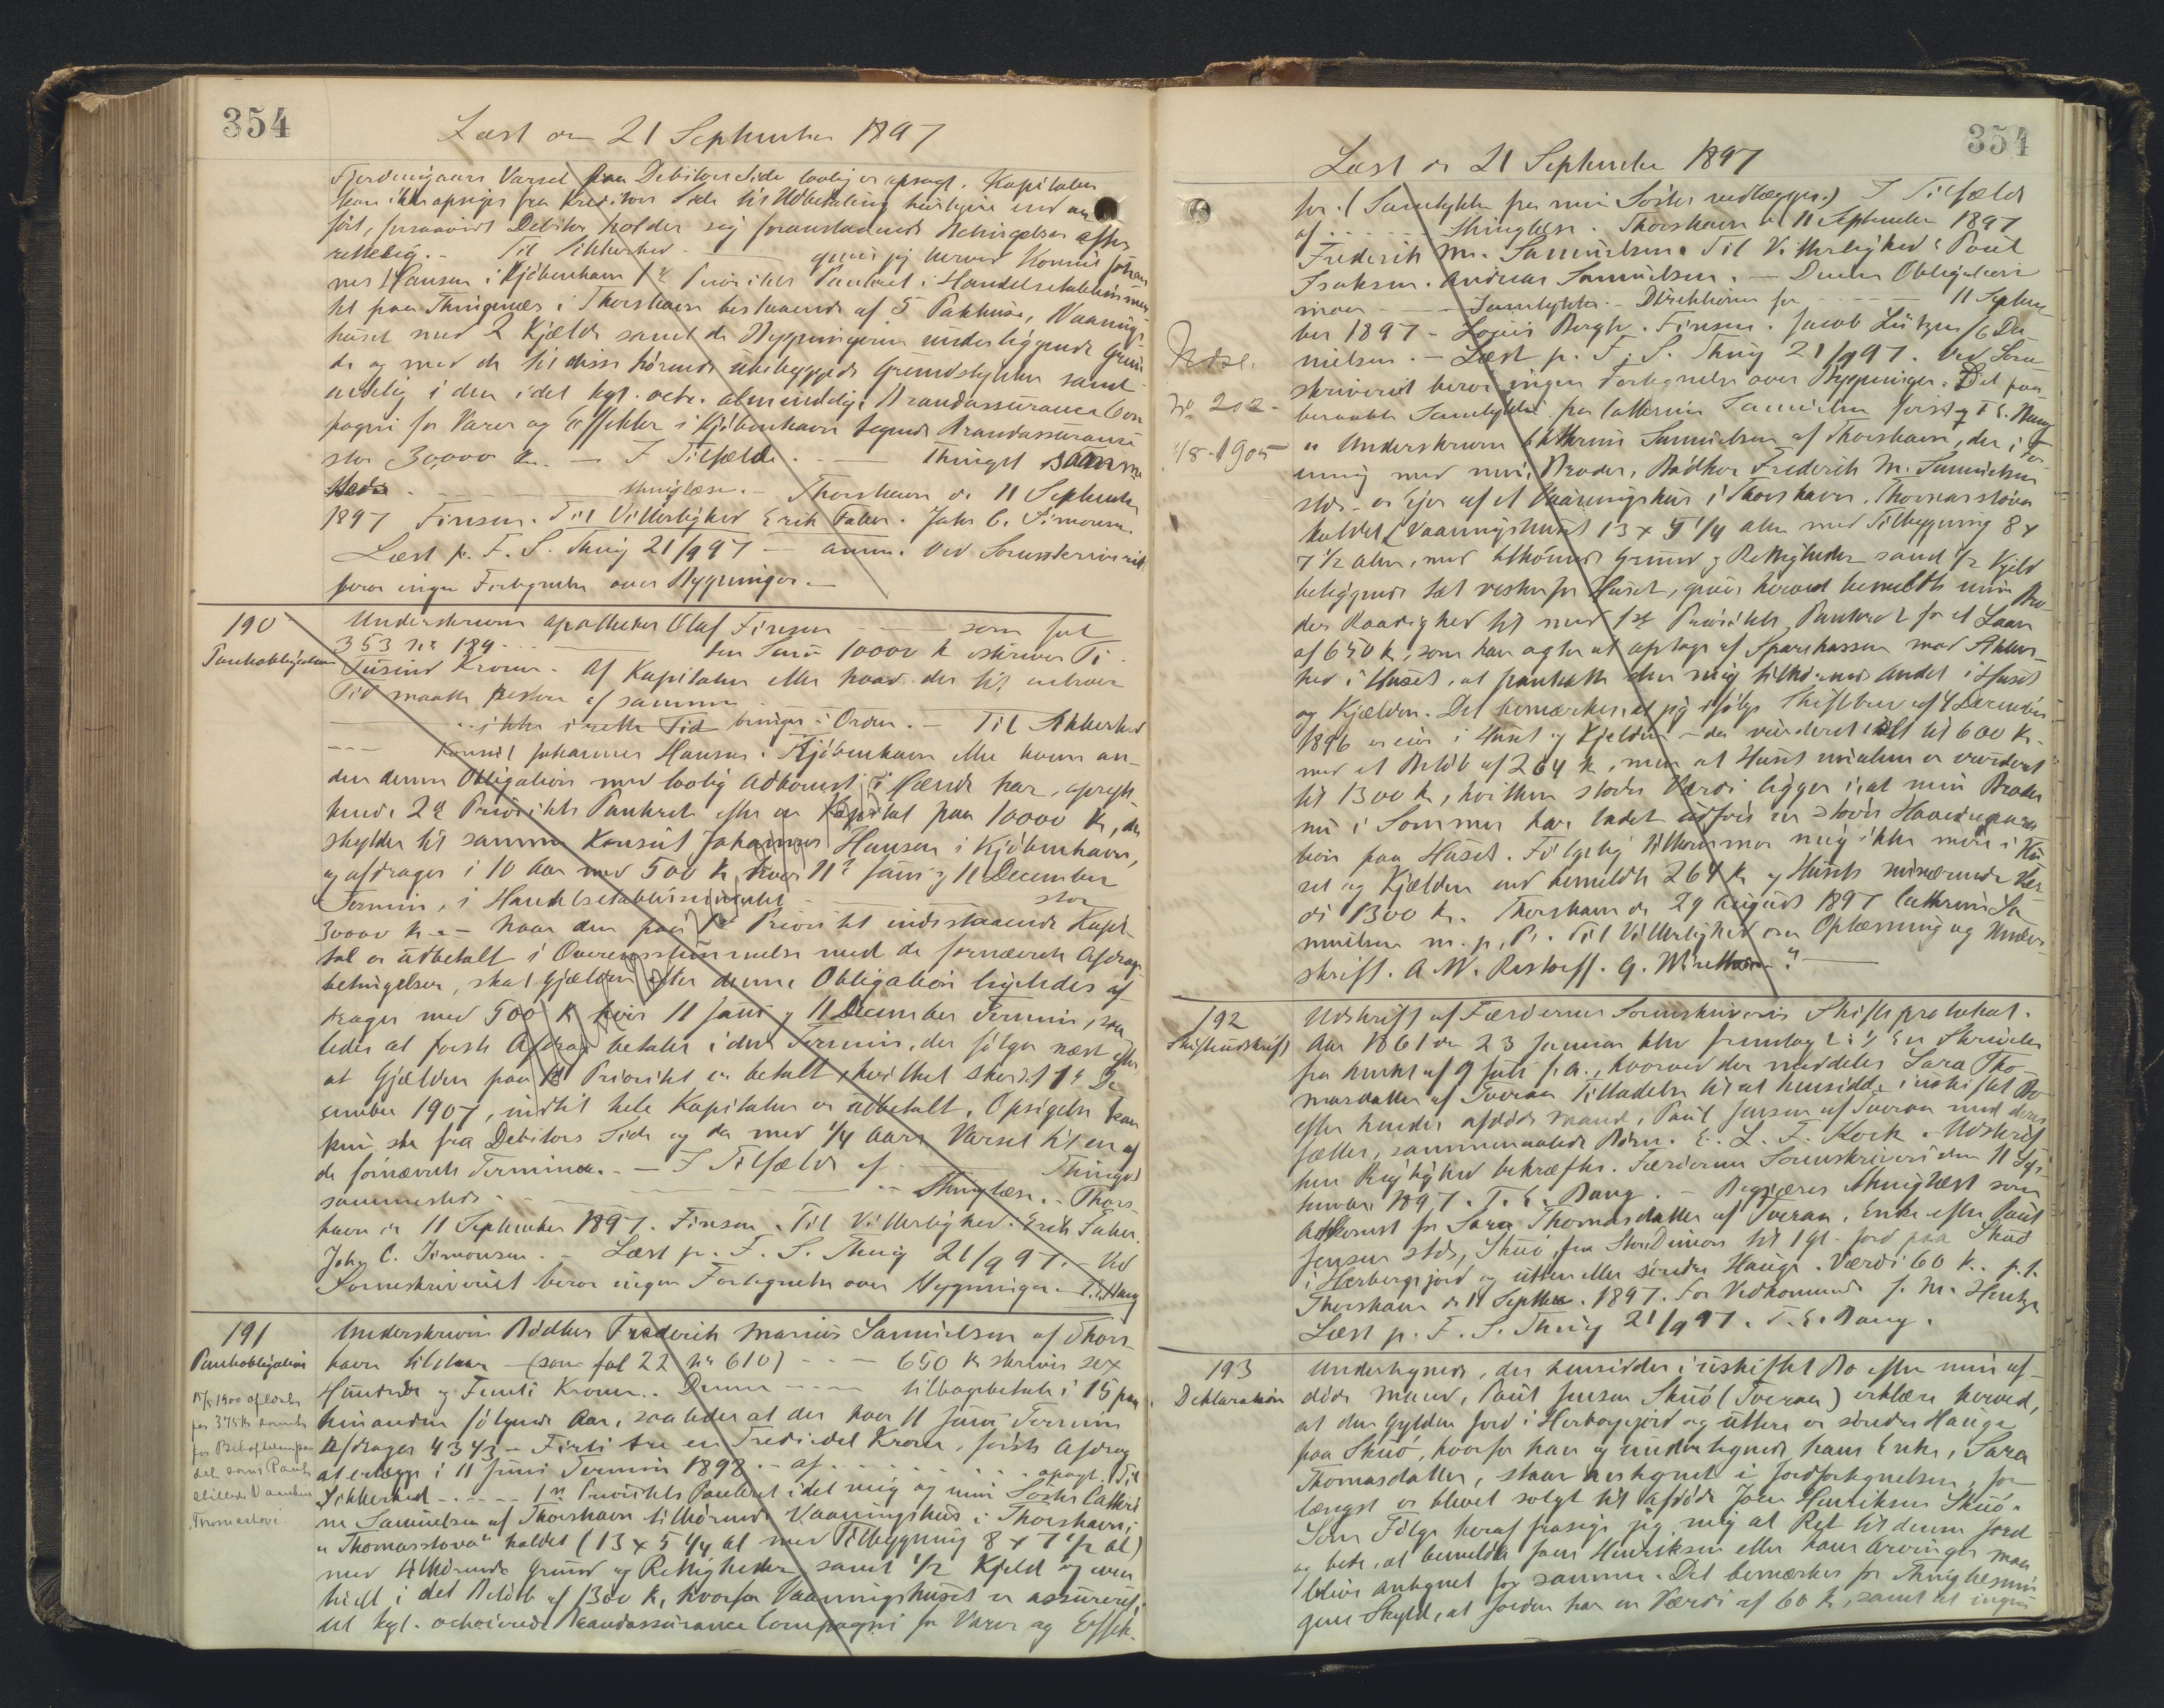 354
Læst den 21 September 1897
Fjerdingaars Varsel fra Debitors Side lovlig er opsagt. Kapitalen
kan ikke opsiges fra Kreditors Side til Udbetaling tidligere end an-
ført, forsaavidt Debitor holder sig foranstaaende Betingelser efter-
rettelig. - Til Sikkerhed - giver jeg herved Konsul Johan-
nes Hansen i Kjöbenhavn 1ste Prioritets Panteret i Handelsetablissemen-
tet paa Thinganæs i Thorshavn bestaaende af 5 Pakhuse, Vaanings-
huset med 2 Kjældre samt de Bygningerne underliggende Grun-
de og med de til disse hörende ubebyggede Grundstykker samt
endelig i den i det kgl. octr. almindelige Brandassurance Com-
pagni for Varer og Effekter i Kjöbenhavn tegnede Brandassurance
stor 30,000 Kr. - I Tilfælde - Thinget samme-
steds - thinglæses. - Thorshavn d. 11 September
1897 Finsen. Til Vitterlighed Erik Faber. Johs C. Simonsen.
Læst p. F. S. Thing 21/9 97 - anm. Ved Sorenskriveriet
beror ingen Fortegnelse over Bygninger. -
190
Pantobligation
Underskrevne Apotheker Olaf Finsen - som fol
353 No 189 - den Sum 10000 Kr skriver Ti
Tusind Kroner. Af Kapitalen eller hvad der til enhver
Tid maatte restere af samme
- ikke i rette Tid bringes i Orden. - Til Sikkerhed
- Konsul Johannes Hansen i Kjöbenhavn eller hvem an-
den denne Obligation med lovlig Adkomst i Hænde har, oprykk-
ende 2den Prioritets Panteret efter en Kapital paa 10000 Kr, der
skyldes til samme Konsul Johannes Hansen i Kjöbenhavn,
og afdrages i 10 Aar med 500 Kr hver 11te Juni og 11 December
Termin, i Handelsetablissementet - stor
30000 Kr. - Naar den paa 1ste Prioritet indestaaende Kapi-
tal er udbetalt i Overensstemmelse med de fornævnte Afdrags-
betingelser, skal Gjælden efter denne Obligation ligeledes af-
drages med 500 Kr hver 11 Juni og 11 December Termin, saa-
ledes at første Afdrag betales i den Termin, der følger næst efter
at Gjælden paa 1ste Prioritet er betalt, hvilket sker 11te De-
cember 1907, indtil hele Kapitalen er udbetalt. Opsigelse kan
kun ske fra Debitors Side og da med 1/4 Aars Varsel til en af
de fornævnte Terminer. - I Tilfælde af - Thinget
sammesteds - Thinglæses. - Thors-
havn d. 11 September 1897. Finsen. Til Vitterlighed: Erik Faber.
Johs C. Simonsen. - Læst p. F. S. Thing 21/9 97. - Ved
Sorenskriveriet beror ingen Fortegnelse over Bygninger. T. E. Bang
191
Pantobligation
Underskrevne Bödker Frederik Marius Samuelsen af Thors-
havn tilstaar - (som fol 22 No 610) - 650 Kr skriver sex
Hundrede og Femti Kroner. Denne - tilbagebetales i 15 paa
hinanden følgende Aar, saaledes at der hver 11 Juni Termin
afdrages 43 1/3 - Firti tre en Trediedel Krone, første Afdrag
at erlægge i 11 Juni Termin 1898. - af - opsagt. Til
Sikkerhed - 1ste Prioritets Panteret i det mig og min Söster Cathri-
ne Samuelsen af Thorshavn tilhörende Vaaningshus i Thorshavn,
"Thomasstova" kaldet (13 x 5 1/4 al med Tilbygning 8 x 7 1/2 al)
med tilhörende Grund og Rettigheder samt 1/2 Kjeld og even-
tuelt i det Belöb af 1300 Kr, hvorfor Vaaningshuset er assureret i
det kgl. octroierede Brandassurance Compagni for Varer og Effek-
354
Læst d. 21 September 1897
ter. (Samtykke fra min Söster vedlægges.) I Tilfælde
af - thinglæses. Thorshavn d. 11 September 1897
Frederik M. Samuelsen. Til Vitterlighed: Poul
Isaksen. Andreas Samuelsen. - Denne Obligation
maa - Samtykke - Direktionen for - 11 Septem-
ber 1897 - Louis Bergh. Finsen. Jacob Lützen / C Da-
nielsen. - Læst p. F. S. Thing 21/9 97. Ved Soren-
skriveriet beror ingen Fortegnelse over Bygninger. Det paa-
beraabte Samtykke fra Cathrine Samuelsen T. E. Bang
No 202 -
1/8 1905
"Underskrevne Cathrine Samuelsen af Thorshavn, der i For-
ening med min Broder, Bödker Frederik M. Samuelsen
stds. er Ejer af et Vaaningshus i Thorshavn, Thomasstova
kaldet (Vaaningshuset 13 x 5 1/4 alen med Tilbygning 8 x
7 1/2 alen, med tilhörende Grund og Rettigheder samt 1/2 Kjeld
beliggende tæt vesten for Huset, giver herved bemeldte min Bro-
der Raadighed til med 1ste Prioritets Panteret for et Laan
af 650 Kr, som han agter at optage af Sparekassen mod Sikker-
hed i Huset, at pantsætte den mig tilhörende Andel i Huset
og Kjælderen. Det bemærkes, at jeg ifølge Skiftebrev af 4 December
1896 er eier i Huset og Kjelderen - der vurderet ialt til 600 Kr -
med et Belöb af 264 Kr, men at Huset nu er vurderet
til 1300 Kr, hvilken större Værdi ligger i, at min Broder
nu i Sommer har ladet udføre en större Hovedrepara-
tion paa Huset. Følgelig tilkommer mig ikke mere i Hu-
set og Kjælderen end bemeldte 264 Kr af Husets nuværende Vær-
di 1300 Kr. Thorshavn d. 29 August 1897 Cathrine Sa-
muelsen m. p. P. Til Vitterlighed om Oplæsning og Under-
skrift. A. W. Restorff.
192
Skifteudskrift
Udskrift af Færöernes Sorenskriveris Skifteprotokol.
Aar 1861 den 23 Januar blev fremlagt En Skrivelse
fra Amtet af 9 Juli f. A., hvorved der meddeles Sara Tho-
masdatter af Tveraa Tilladelse til at hensidde i uskiftet Bo
efter hendes afdöde Mand, Paul Jensen af Tveraa med deres
fælles, sammenavlede Börn. E. L. F. Kock. Udskrif-
tens Rigtighed bekræftes. Færöernes Sorenskriveri den 11 Sep-
tember 1897. T. E. Bang. - Begjæres thinglæst som
Adkomst for Sara Thomasdatter af Tveraa, Enke efter Paul
Jensen stds, Skuö, fra Stor Dimon til 1 gl. Jord paa Skuö
i Herbergsjord og uttere eller söndre Hauge. Værdi 60 Kr. p. t.
Thorshavn d. 11 Septbr. 1897. For Vedkommende J. M. Hentze
Læst p. F. S. Thing 21/9 97. T. E. Bang.
193
Deklaration
Undertegnede, der hensidder i uskiftet Bo efter min af-
döde Mand, Paul Jensen Skuö (Tveraa) erklærer herved,
at den Gylden Jord i Herbergsjord og uttere og söndre Hauge
paa Skuö, hvorfor han og undertegnede hans Enke, Sara
Thomasdatter, staar antegnet i Jordfortegnelsen, for-
længst er blevet solgt til afdöde Joen Henriksen Skuö.
Som Følge heraf frasiger jeg mig al Ret til denne Jord
og beder, at bemeldte Joen Henriksen eller hans Arvinger maa
blive antegnet for samme. Det bemærkes for Thinglæsnin-
gens Skyld, at Jorden har en Værdi af 60 Kr, samt at ingen